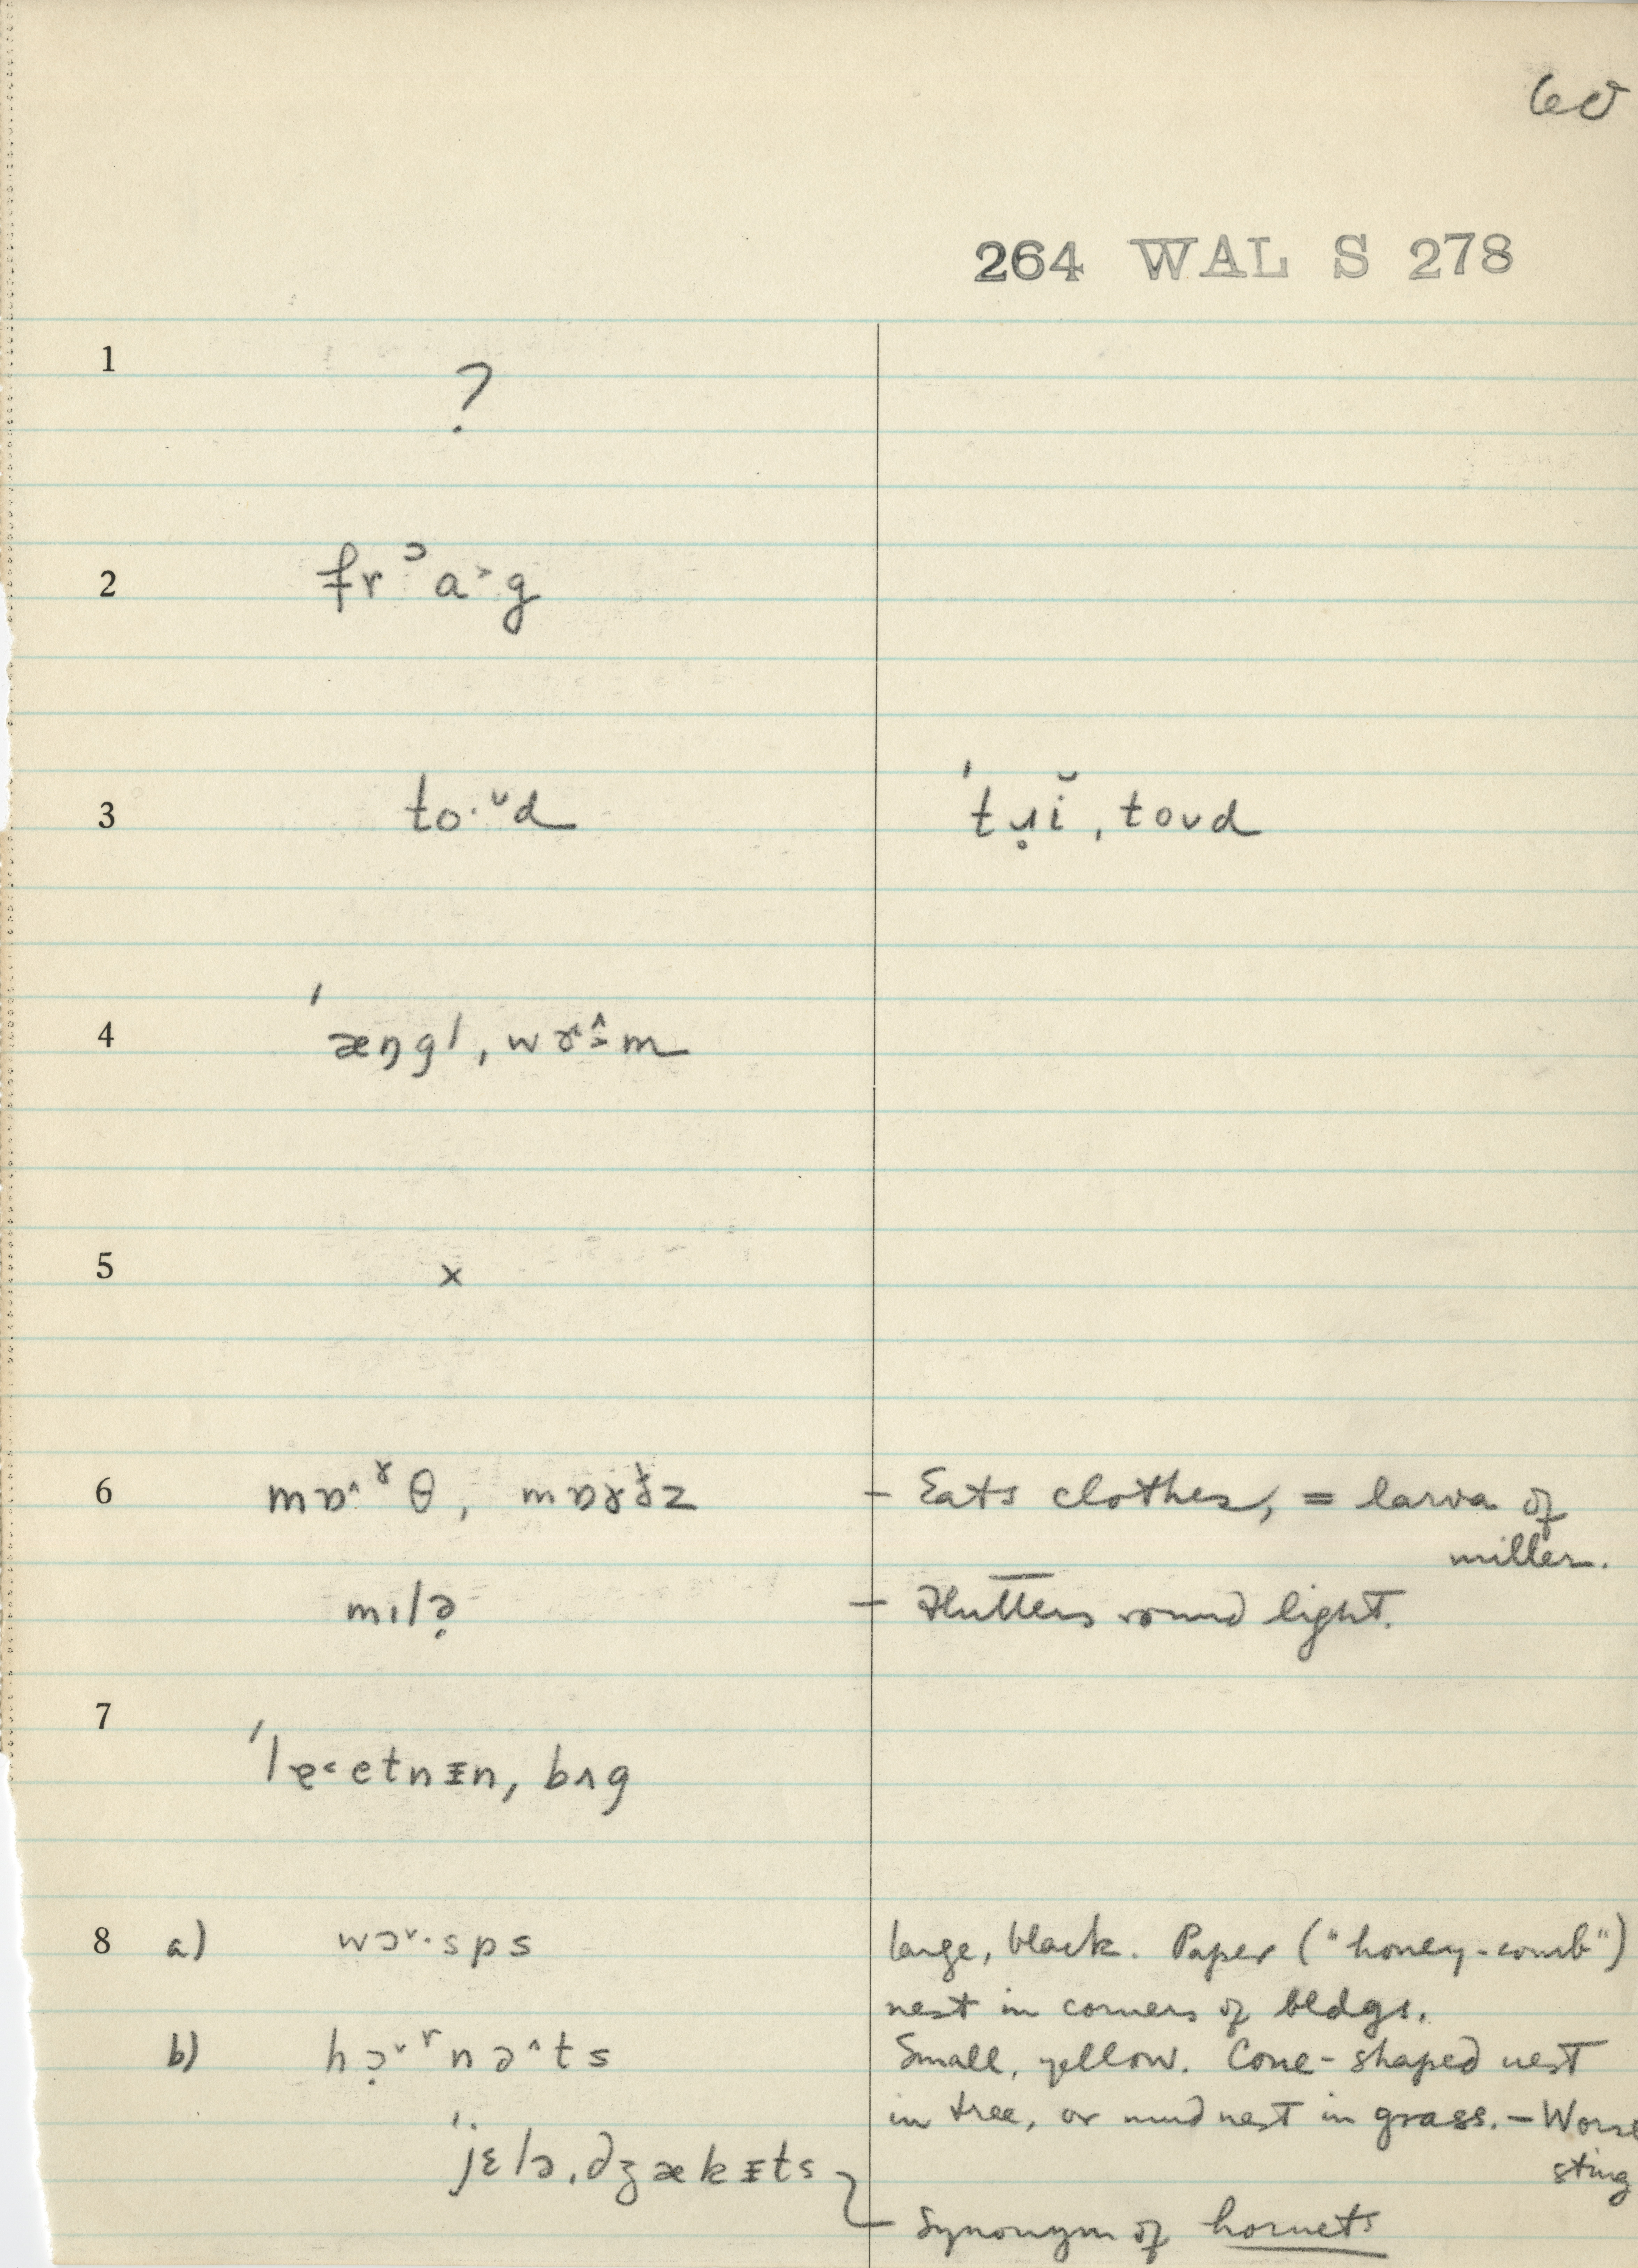 60
264 WAL S 278
1 ?
2 frᵓa˃g
3 to·ᶷd ˈtɹ̣ĭ, toʊd
4 ˈæŋgl, wɤ˂^m
5 x
6 mɒ^ˠθ, mɒɤðz — Eats clothes, = larva of
miller.
mɪlə̣ — Flutters round light.
7 ˈlɐ˂etnɪn, bʌg
8 a) wɔ˅·sps large, black. Paper ("honey-comb")
nest in corners of bldgs.
b) hɔ̣˅ʳnə^ts Small, yellow. Cone-shaped nest
in tree, or mud nest in grass. — Worse
sting
ˈjɛlə, dʒækɪts
Synonym of hornets